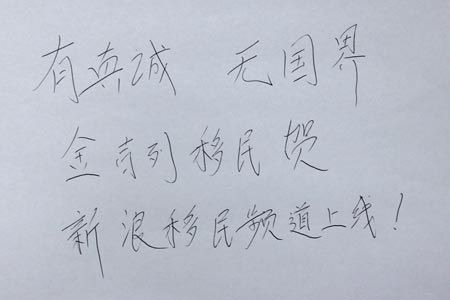 有真诚 无国界
金吉列移民贺
新浪移民频道上线！